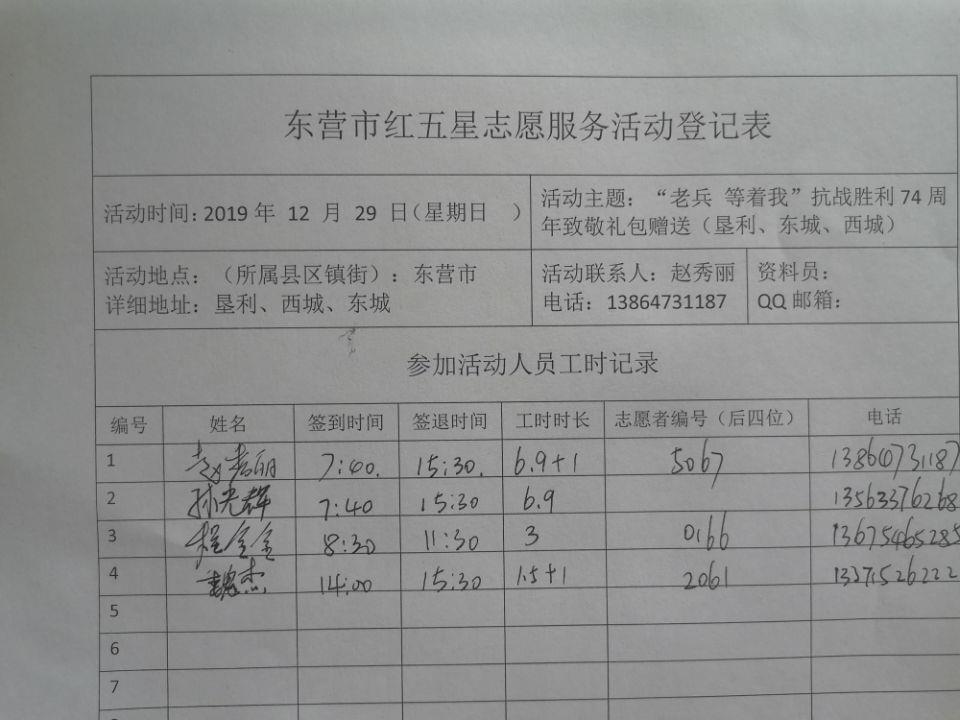 东营市红五星志愿服务活动登记表
活动时间：2019 年 12 月 29 日（星期日 ）
活动主题：“老兵 等着我”抗战胜利 74 周
年致敬礼包赠送（垦利、东城、西城）
活动地点：（所属县区镇街）：东营市
详细地址：垦利、西城、东城
活动联系人：赵秀丽
电话：13864731187
资料员：
QQ 邮箱：
参加活动人员工时记录
编号 姓名 签到时间 签退时间 工时时长 志愿者编号（后四位） 电话
1 赵秀丽 7:40. 15:30. 6.9+1 5067
2 孙光辉 7:40 15:30 6.9 13563376268
3 程金金 8:30 11:30 3 0166 13675465285
4 魏杰 14:00 15:30 1.5+1 2061
5
6
7